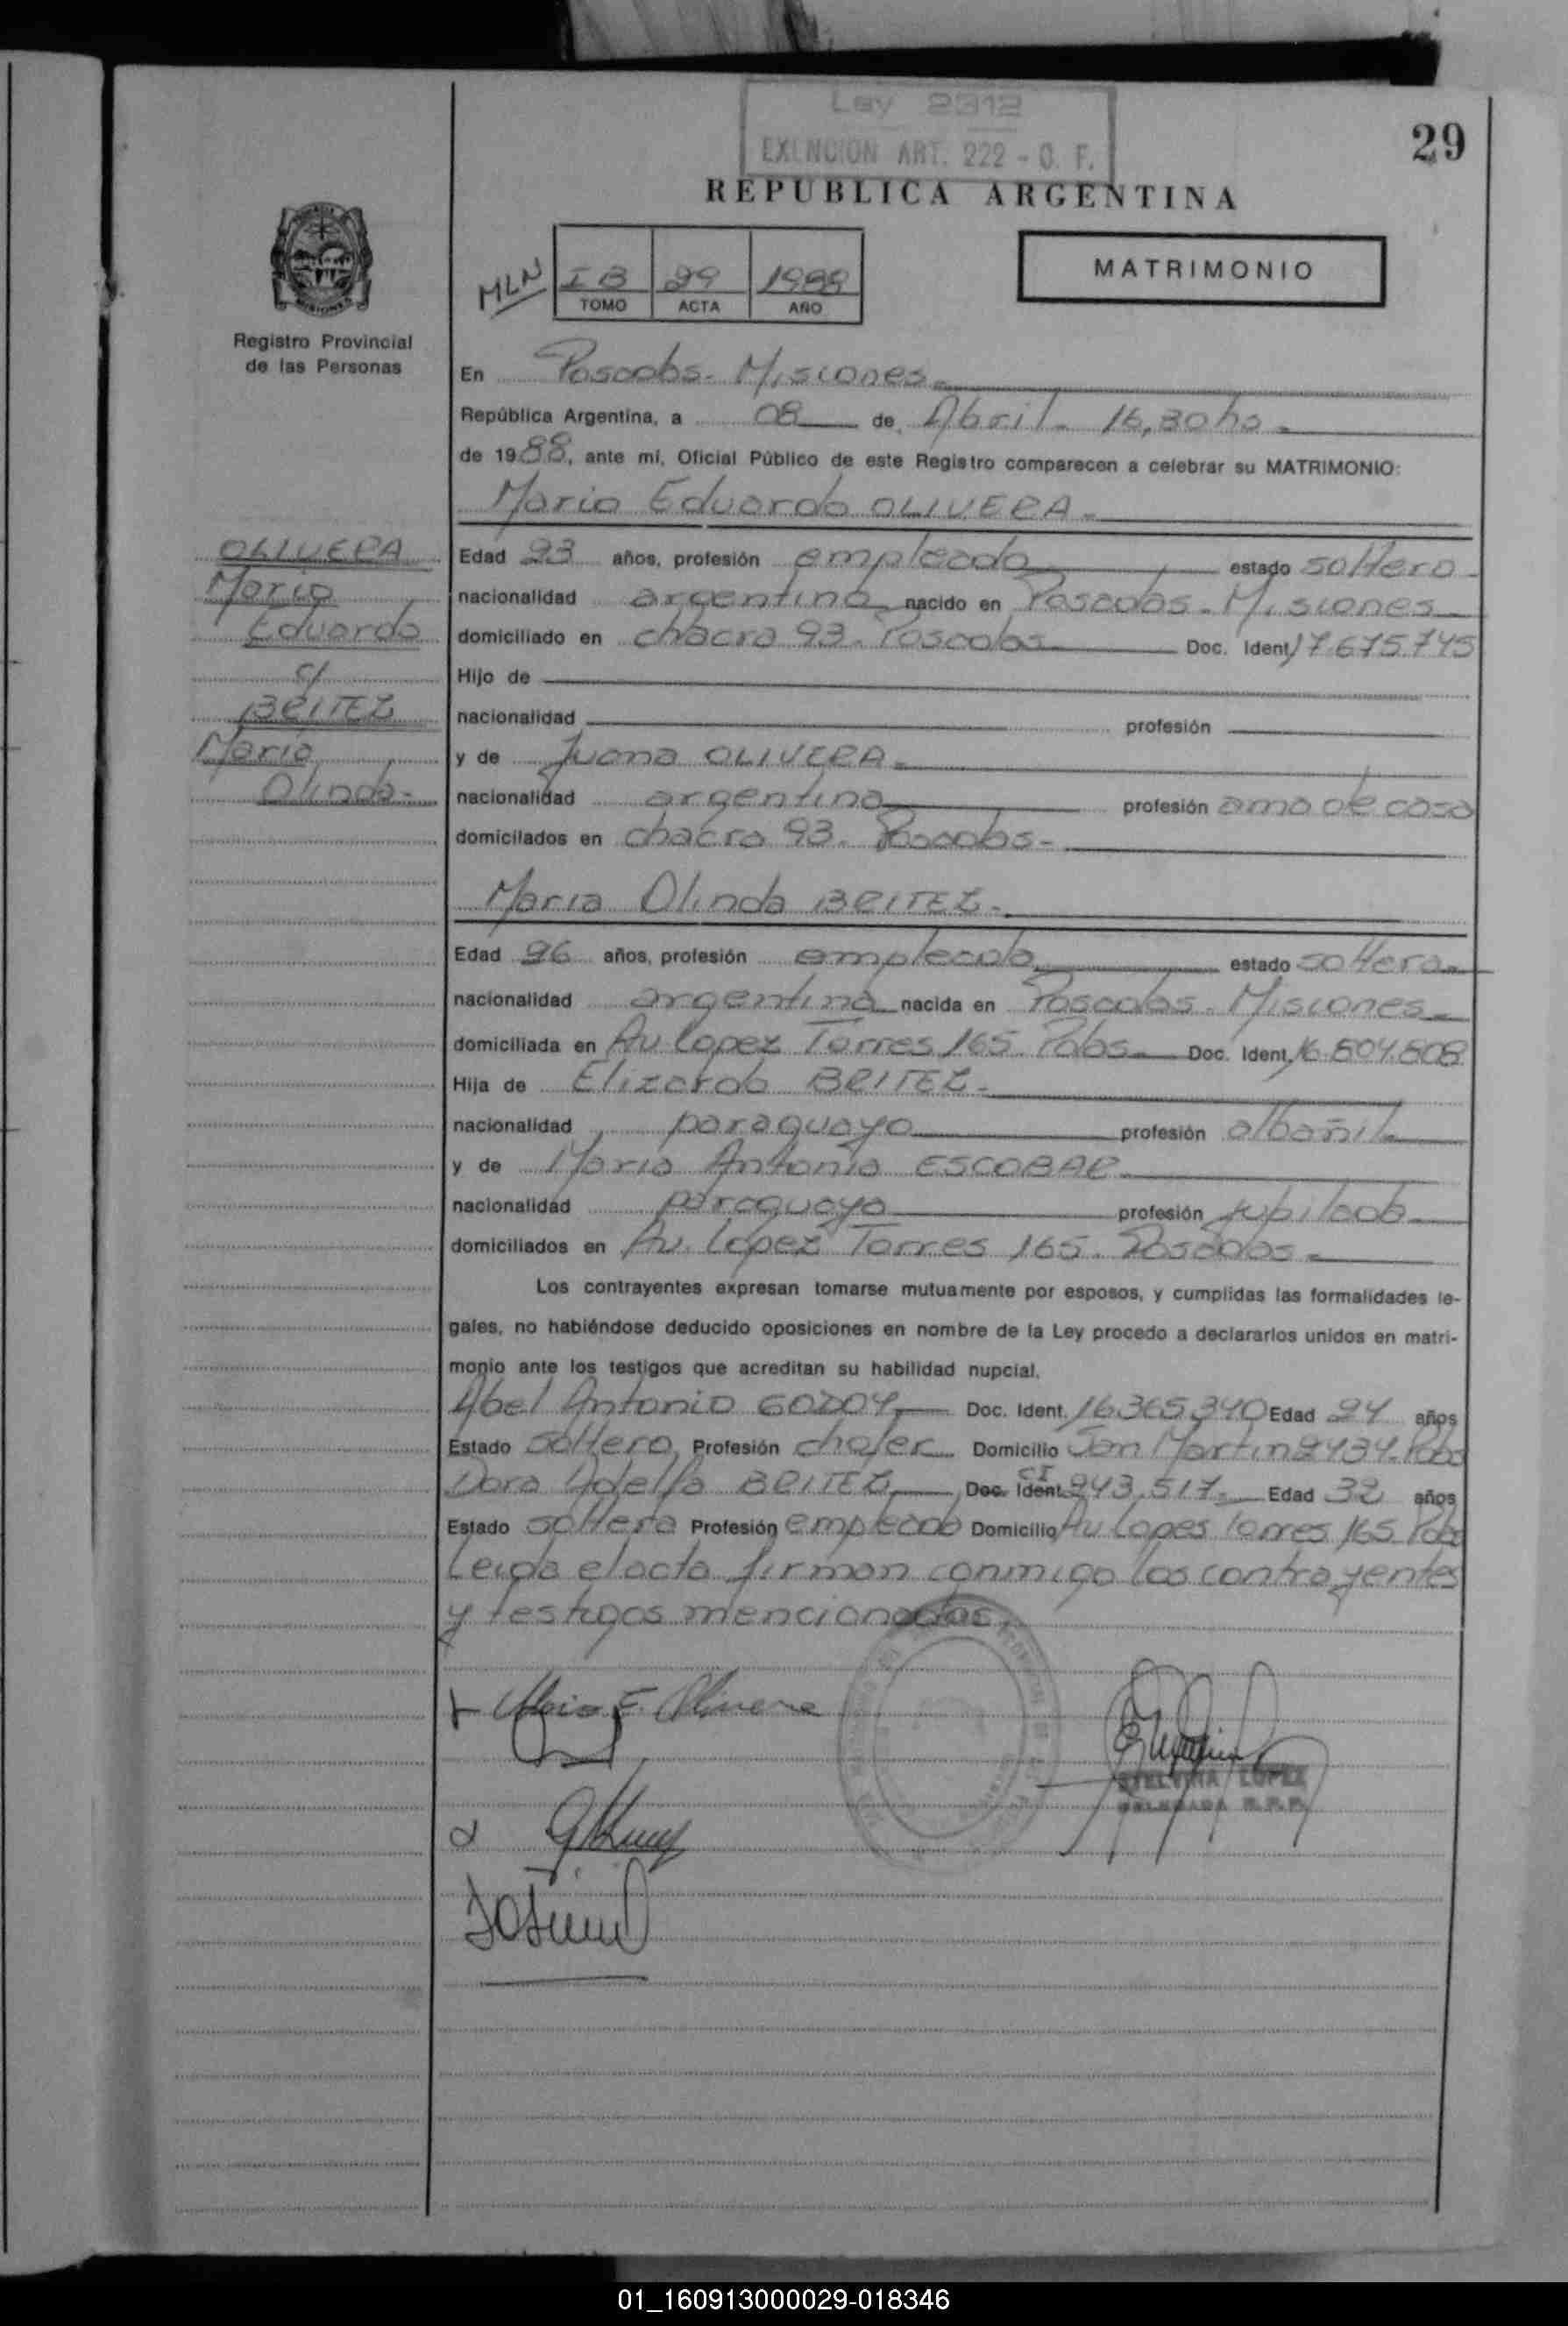 Ley 2312
EXENCION ART. 222 - C. F.
29
REPUBLICA ARGENTINA
MLN
I B 29 1988
TOMO ACTA AÑO
MATRIMONIO
Registro Provincial
de las Personas
En Posadas - Misiones
República Argentina, a 08 de Abril - 16,30 hs
de 1988, ante mí, Oficial Público de este Registro comparecen a celebrar su MATRIMONIO:
Mario Eduardo OLIVERA
OLIVERA
Mario
Eduardo
c/
BRITEZ
María
Olinda
Edad 23 años, profesión empleado estado soltero
nacionalidad argentina nacido en Posadas - Misiones
domiciliado en chacra 93 - Posadas Doc. Ident. 17.675.745
Hijo de
nacionalidad profesión
y de Juana OLIVERA
nacionalidad argentina profesión ama de casa
domicilados en chacra 93 - Posadas
María Olinda BRITEZ
Edad 26 años, profesión empleada estado soltera
nacionalidad argentina nacida en Posadas - Misiones
domiciliada en Av Lopez Torres 165 - Pdas Doc. Ident. 16.804.808
Hija de Elizardo BRITEZ
nacionalidad paraguayo profesión albañil
y de María Antonia ESCOBAR
nacionalidad paraguaya profesión jubilada
domiciliados en Av. López Torres 165 - Posadas
Los contrayentes expresan tomarse mutuamente por esposos, y cumplidas las formalidades le-
gales, no habiéndose deducido oposiciones en nombre de la Ley procedo a declararlos unidos en matri-
monio ante los testigos que acreditan su habilidad nupcial.
Abel Antonio GODOY Doc. Ident. 16.365.340 Edad 24 años
Estado soltero Profesión chofer Domicilio San Martin 2434 - Pdas
Dora Adelfa BRITEZ Doc. Ident. CI 243.517 Edad 32 años
Estado soltera Profesión empleada Domicilio Av Lopes Torres 165 Pdas
Leida el acta firman conmigo los contrayentes
y testigos mencionados
Mario E. Olivera
LOPEZ
DELEGADA R.P.P.
01_160913000029-018346